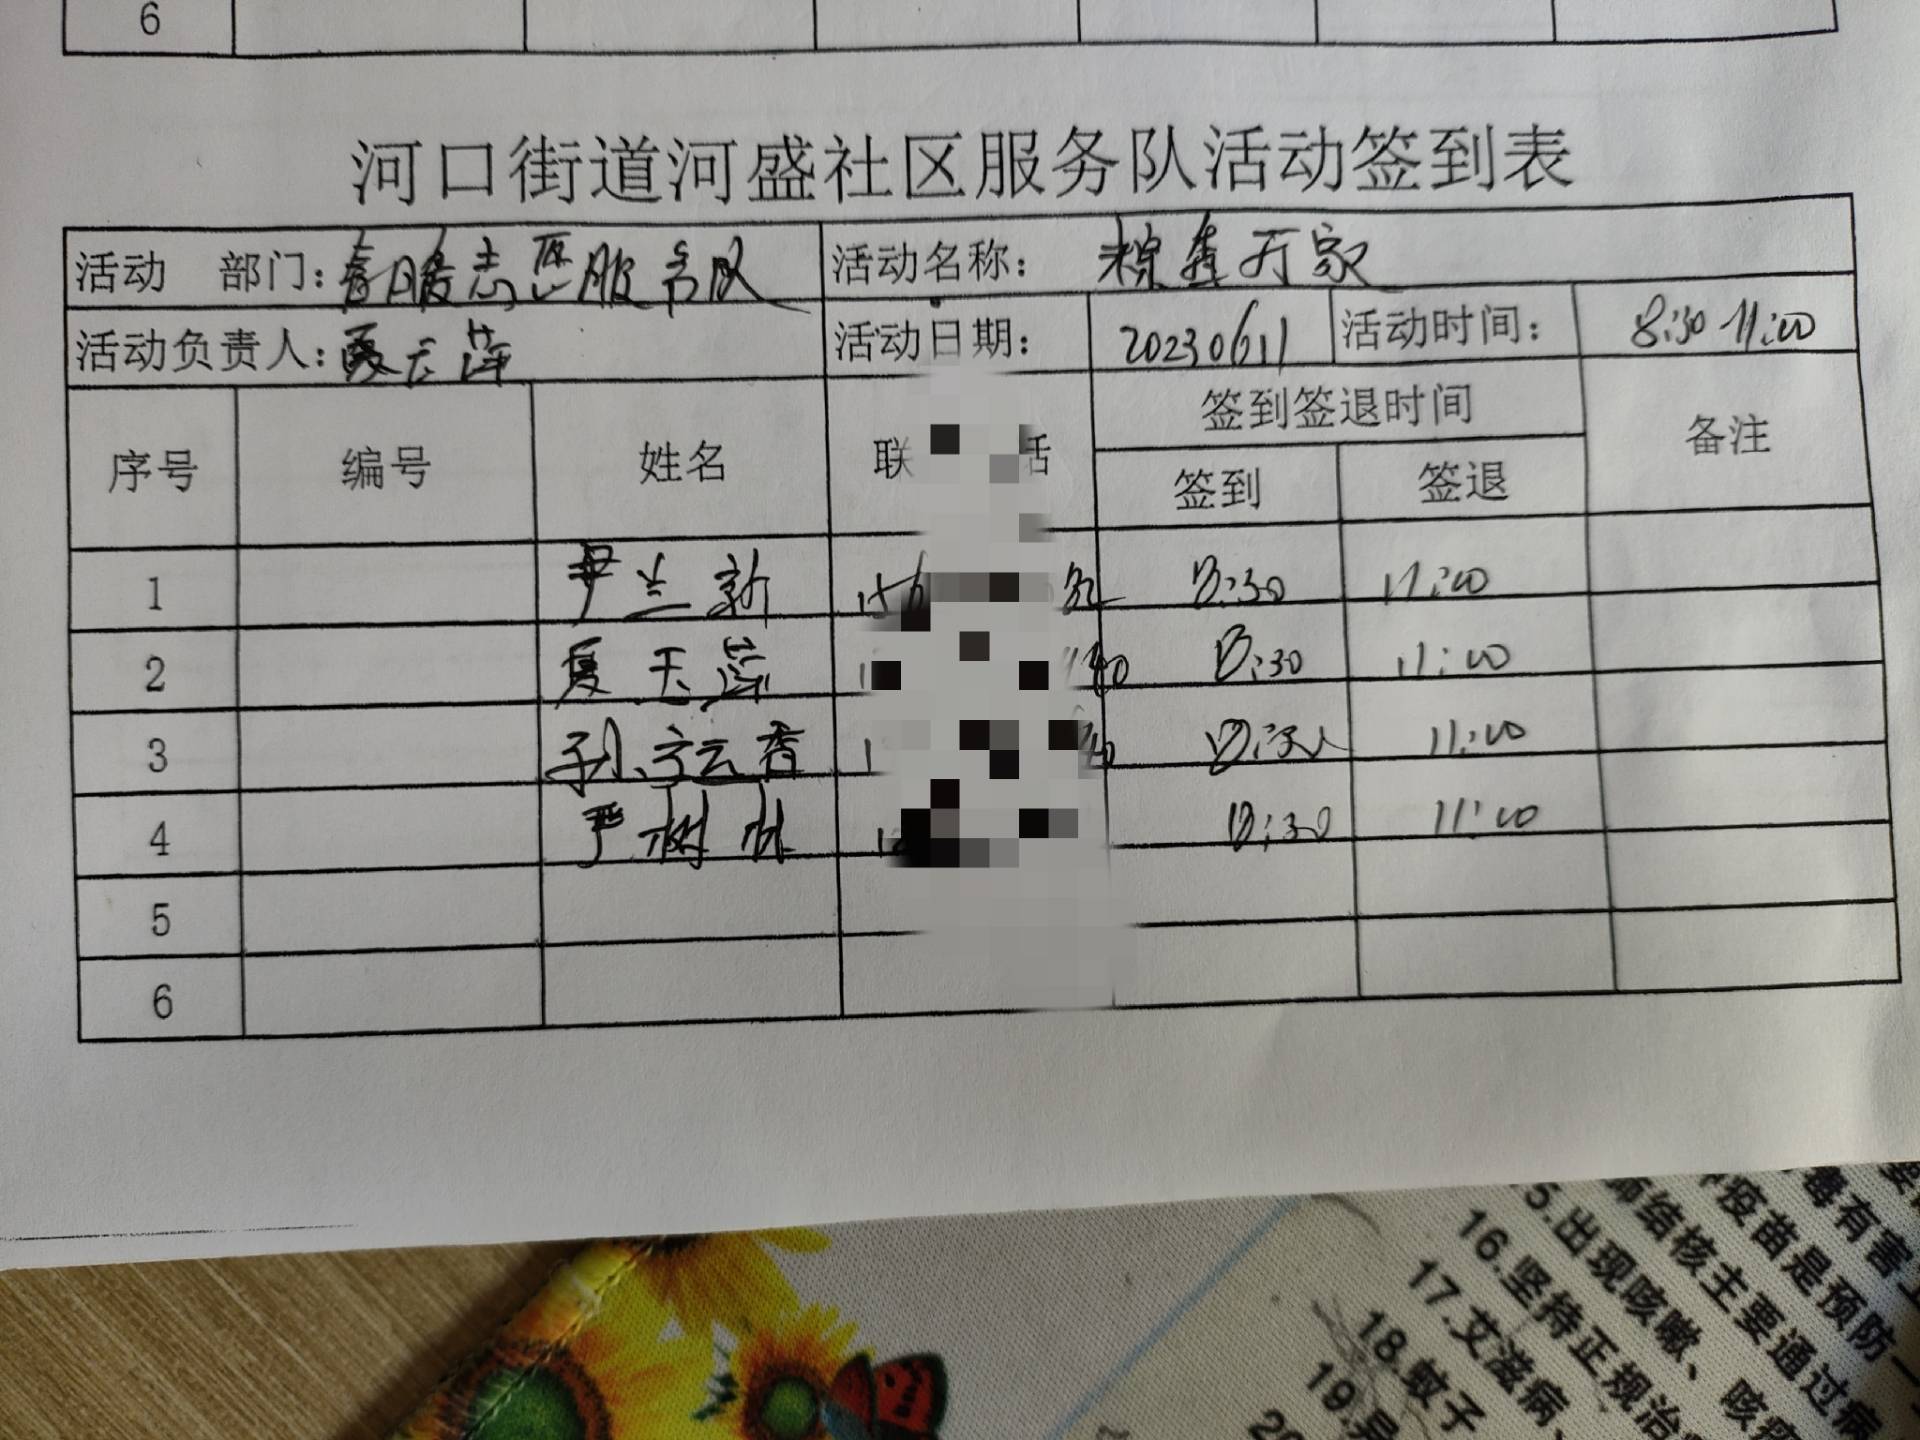 6
河口街道河盛社区服务队活动签到表
活动 部门：春暖志愿服务队 活动名称： 粽香万家
活动负责人：夏天萍 活动日期： 20230611 活动时间： 8:30-11:00
序号 编号 姓名 联 话 签到签退时间 备注
签到 签退
1 尹兰新 156 8:30 11:00
2 夏天萍 8:30 11:00
3 孙云香 11:00
4 严树林 8:30 11:00
5
6
毒有害
疫苗是预防
师结核主要通过病
5.出现咳嗽、咳痰
16.坚持正规治
17.艾滋病、
18.蚊子
19.异